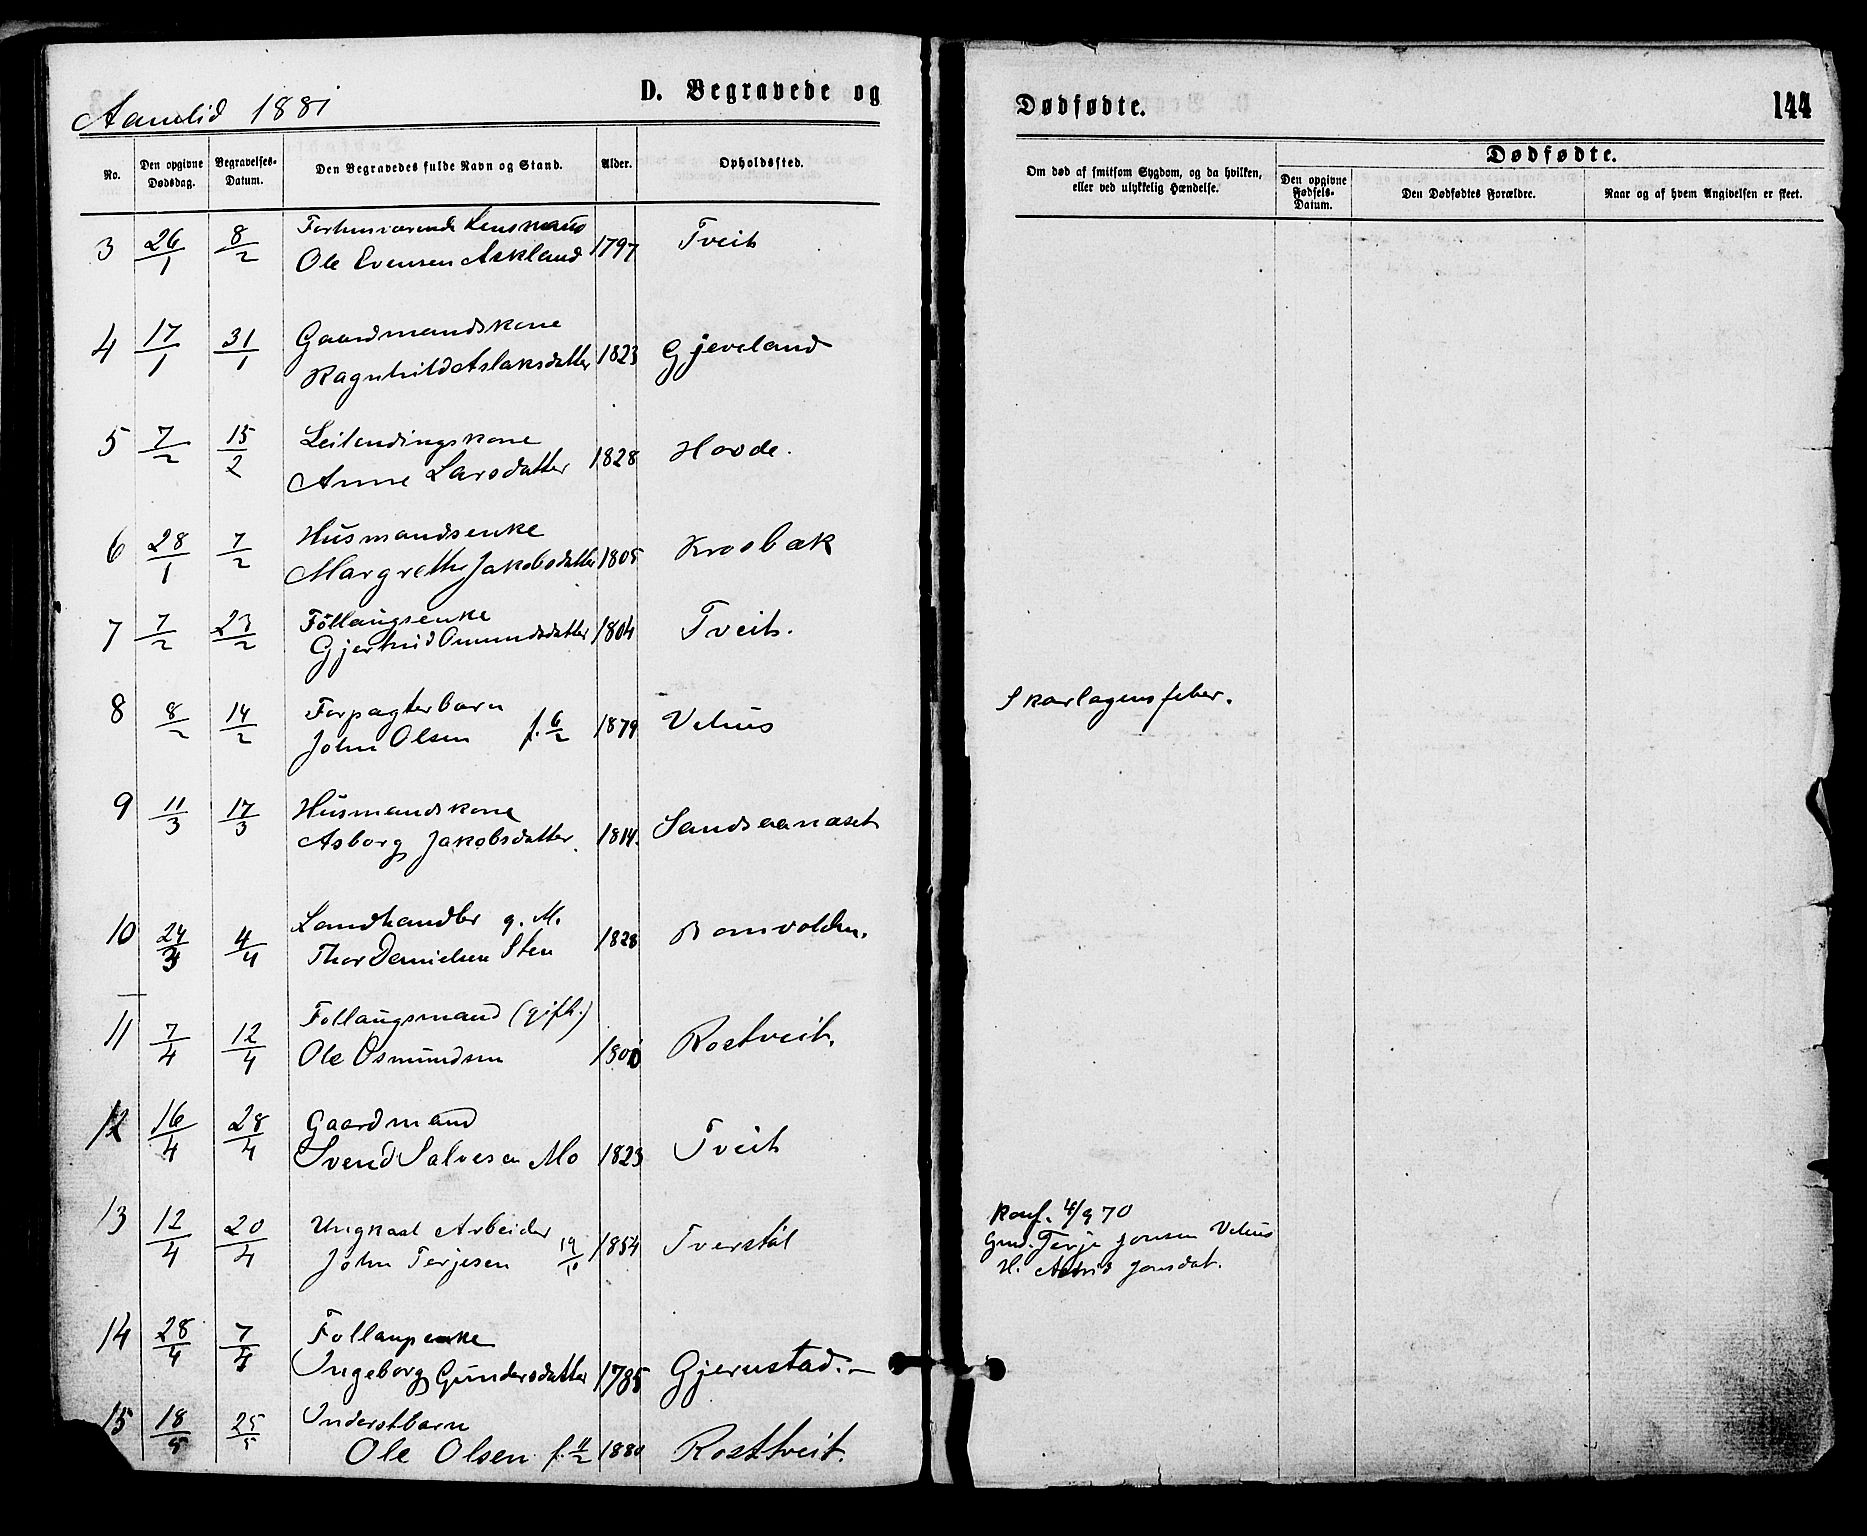 Aamlid 1881
D. Begravede og
No.
Den opgivne Dødsdag.
Begravelses-Datum.
Den Begravedes fulde Navn og Stand.
Alder.
Opholdssted.
3 26/1 8/2 Forhenværende Lensmand
Ole Evensen Askland 1797 Tveit
4 17/1 31/1 Gaardmandskone
Ragnhild Aslaksdatter 1823 Gjeveland
5 7/2 15/2 Leilendingskone
Anne Larsdatter 1828 Hovde.
6 28/1 7/2 Husmandsenke
Margrethe Jakobsdatter 1805 Krosbæk
7 7/2 23/2 Föllaugsenke
Gjertrud Omundsdatter 1804 Tveit.
8 8/2 14/2 Forpagterbarn
John Olsen f. 6/2 1879 Vehus
9 11/3 17/3 Husmandskone
Asborg Jakobsdatter. 1814. Sandsaanæset
10 24/3 4/4 Landhandler g. M.
Thor Danielsen Sten 1828
11 7/4 12/4 Follaugsmand (gift.)
Ole Osmundsen Rostveit.
12 16/4 28/4 Gaardmand
Svend Salvesen Mo 1823 Tveit
13 12/4 20/4 Ungkarl Arbeider
John Terjesen 19/10 1854 Tverstöl
14 28/4 Follaugsenke
Ingeborg Gundersdatter 1785 Gjerustad.-
15 18/5 25/5 Inderstbarn
Ole Olsen f. 11/2 1880 Rosttveit.
Dødfødte.
144
Om død af smitsom Sygdom, og da hvilken,
eller ved ulykkelig Hændelse.
Dødfødte.
Den opgivne Fødsels-Datum.
Den Dødfødtes Forældre.
Naar og af hvem Angivelsen er skeet.
Skarlagensfeber.
Konf. 4/9 70
Gmd. Terje Jonsen Vehus
H. Astrid Jonsdat.